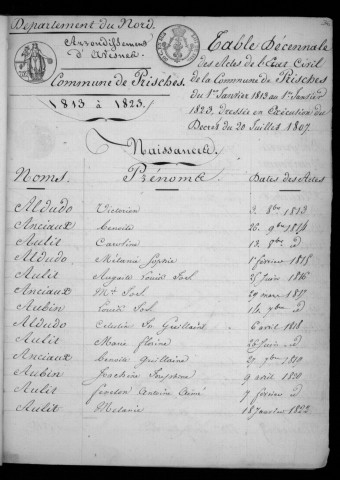 Département du Nord.
Arrondissement
d'Avesnes
Commune de Prisches.
1813 à 1823.
Table Décennale
des Actes de l'Etat Civil
de la Commune de Prisches
du 1er Janvier 1813 au 1er Janvier
1823, dressée en Exécution du
Décret du 20 Juillet 1807.
Naissances.
Noms. Prénoms. Dates des Actes
Aldudo Victorien 3 8bre 1813
Anciaux Benoit 26 9bre 1814
Aulit Caroline 13 8bre id
Aldudo Mélanie Sophie 1er février 1815
Aulit Auguste Louis Josh 25 Juin 1816
Anciaux Mie Josh 29 mars 1817
Aubin Louis Josh 14 7bre id
Aldudo Célestin 6 avril 1818
Aulit Marie florine 26 Juin id
Anciaux Benoite Guillaine
Aubin Joachim 9 avril 1820
Aulit Antoine Aimé 7 février id
Aulit Mélanie 18 Janvier 1822